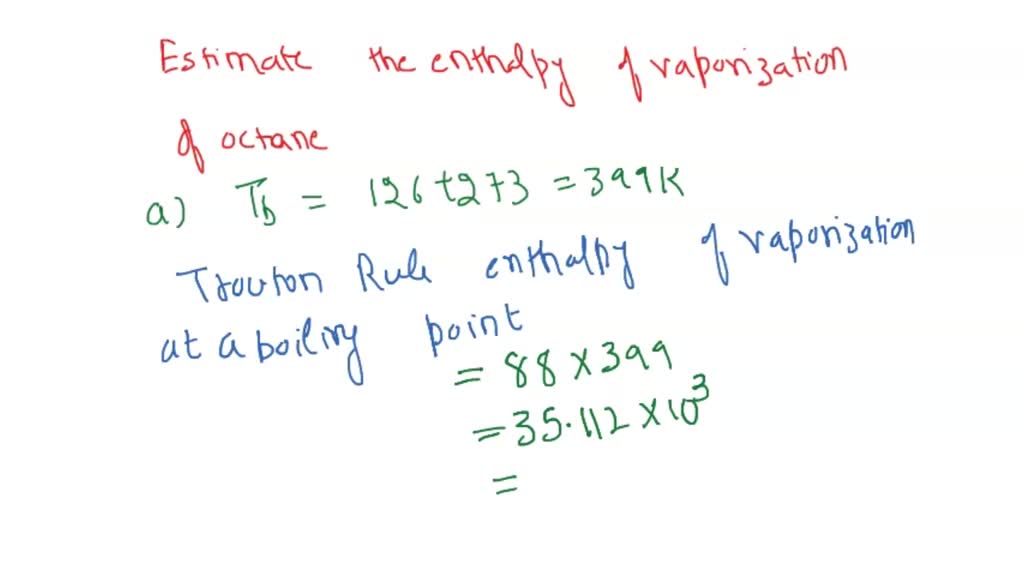 Estimate the enthalpy of vaporization
of octane
a) Tb = 126+273 = 399K
Trouton Rule enthalpy of vaporization
at a boiling point
= 88 × 399
= 35.112 × 10³
=